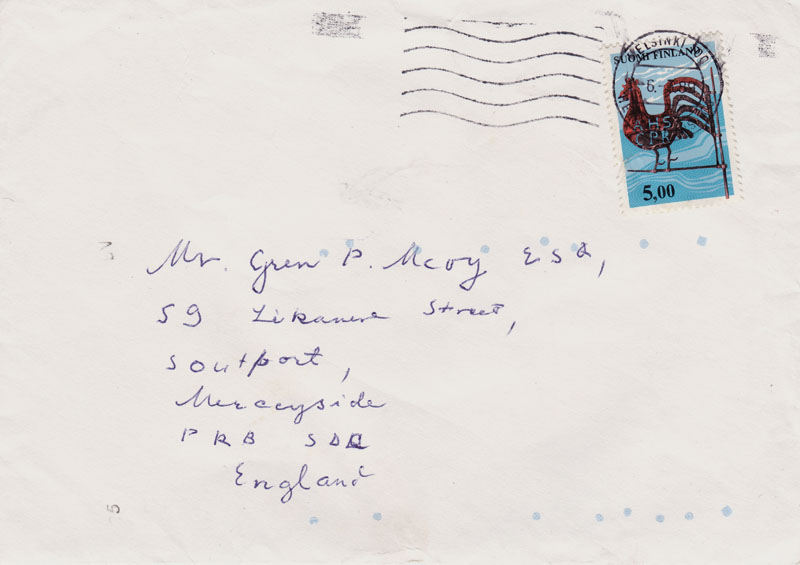 HELSINKI
SUOMI FINLAND
6.
5,00
Mr. Gren P. Mcoy ESQ,
59 Likanere Street,
Soutport,
Merceyside
PRB SDQ
England
5